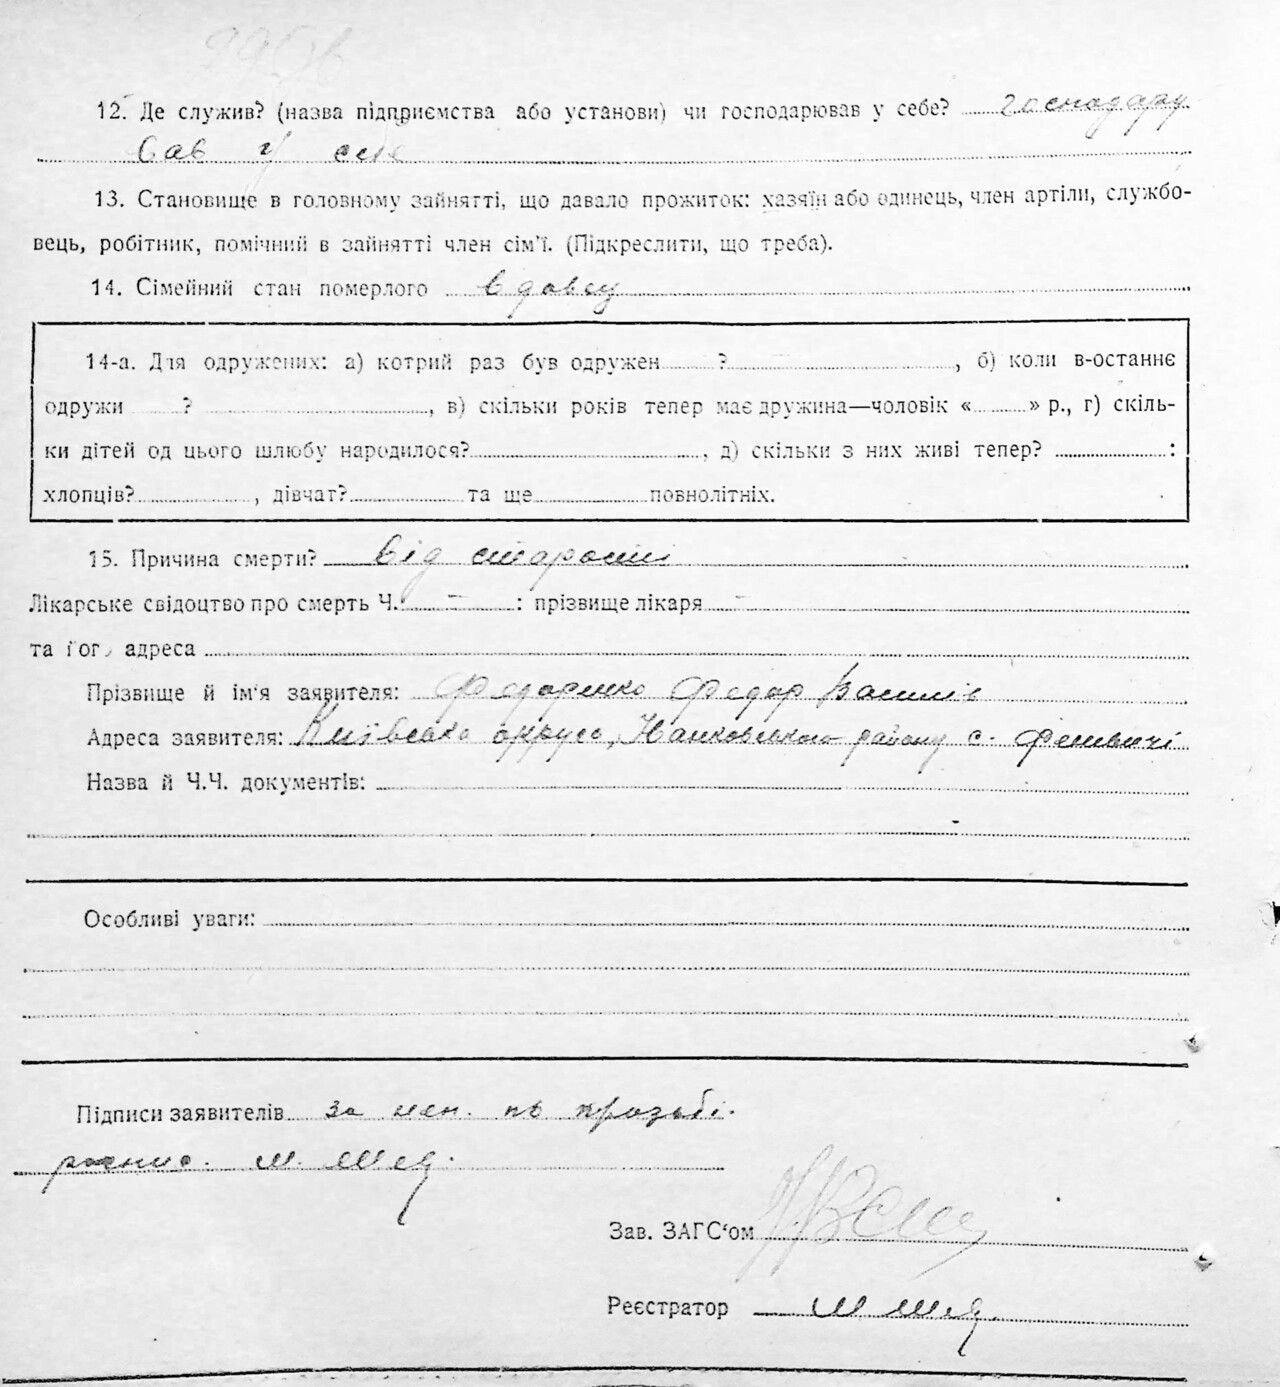 12. Де служив? (назва підприємства або установи) чи господарював у себе? господарю
вав у себе
13. Становище в головному зайнятті, що давало прожиток: хазяїн або одинець, член артіли, службо-
вець, робітник, помічний в зайнятті член сім'ї. (Підкреслити, що треба).
14. Сімейний стан померлого вдовец
14-а. Для одружених: а) котрий раз був одружен ? , б) коли в-останнє
одружи ? , в) скільки років тепер має дружина—чоловік « » р., г) скіль-
ки дітей од цього шлюбу народилося? , д) скільки з них живі тепер? :
хлопців? , дівчат? та ще повнолітніх.
15. Причина смерти? від старости
Лікарське свідоцтво про смерть Ч. – : прізвище лікаря –
та адреса
Прізвище й ім'я заявителя: Федоренко Федор Василів
Адреса заявителя: Київська округа, району с. Феневичі
Назва й Ч.Ч. документів:
Особливі уваги:
Підписи заявителів за неп. по прозьбі
роспис. М.
Зав. ЗАГС'ом
Реєстратор М